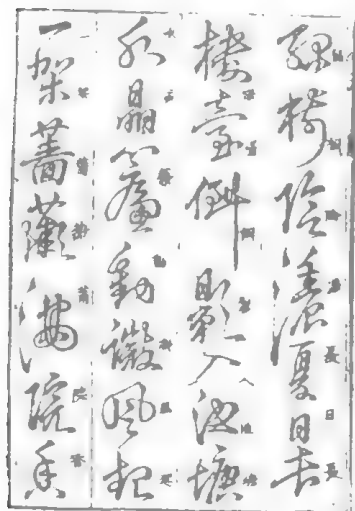 綠樹陰濃夏日長
樓臺倒影入池塘
水晶簾動微風起
一架薔薇滿院香